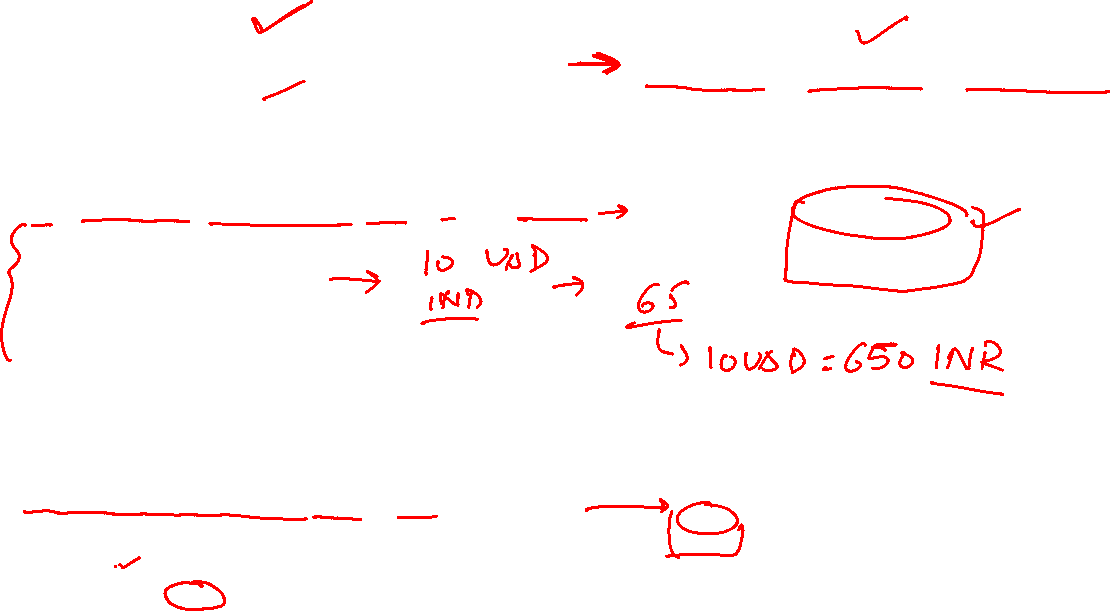 10 USD
IND
65
10USD = 650 INR